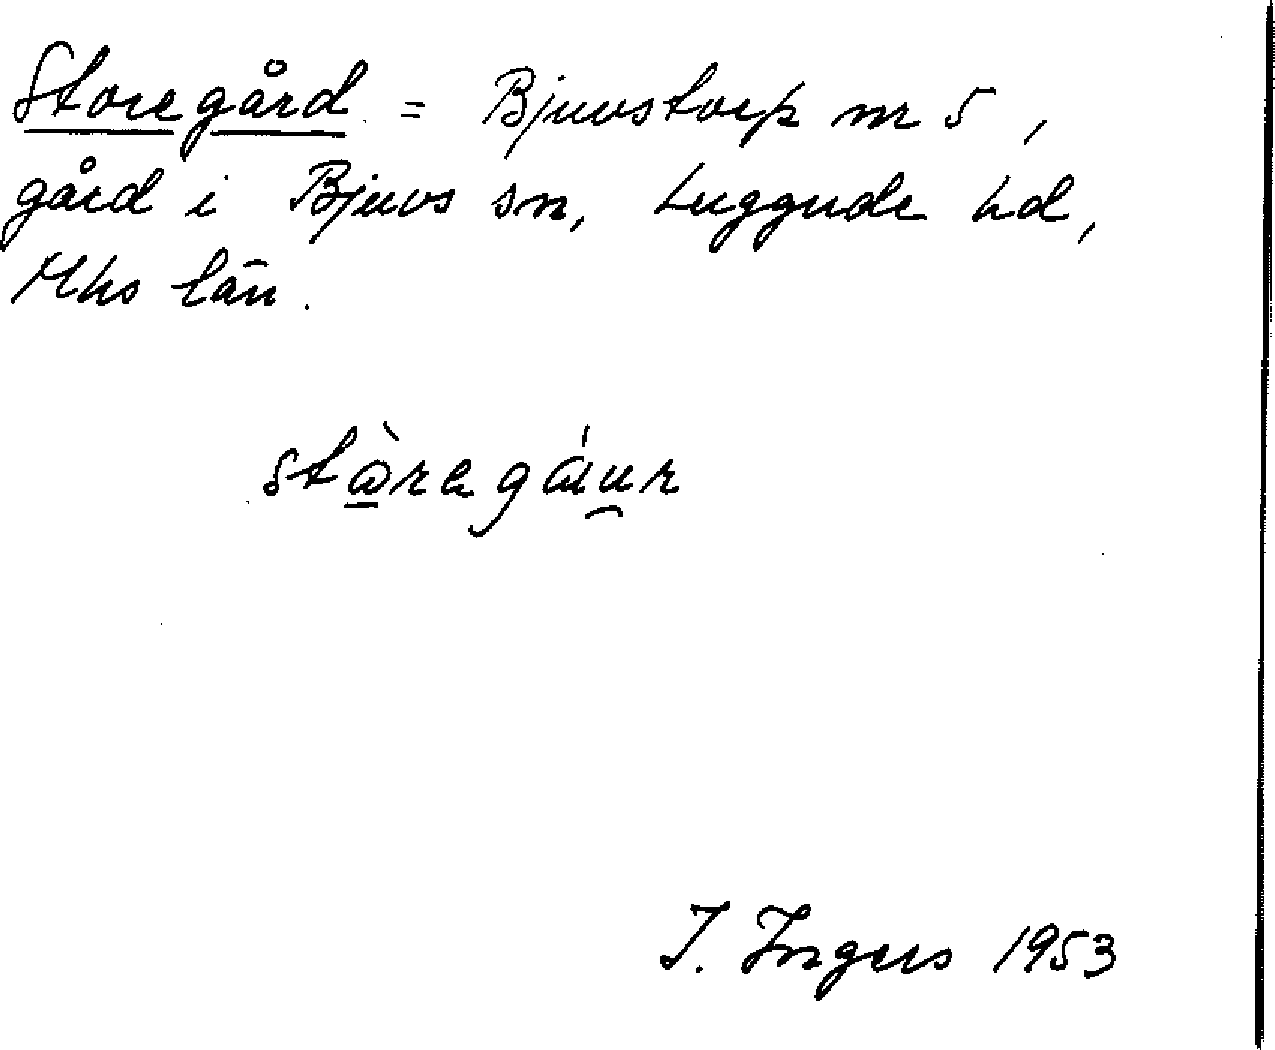 Storegård = Bjuvstorp nr 5,
gård i Bjuvs sn, Luggude hd,
Mhs län.
I. Ingers 1953